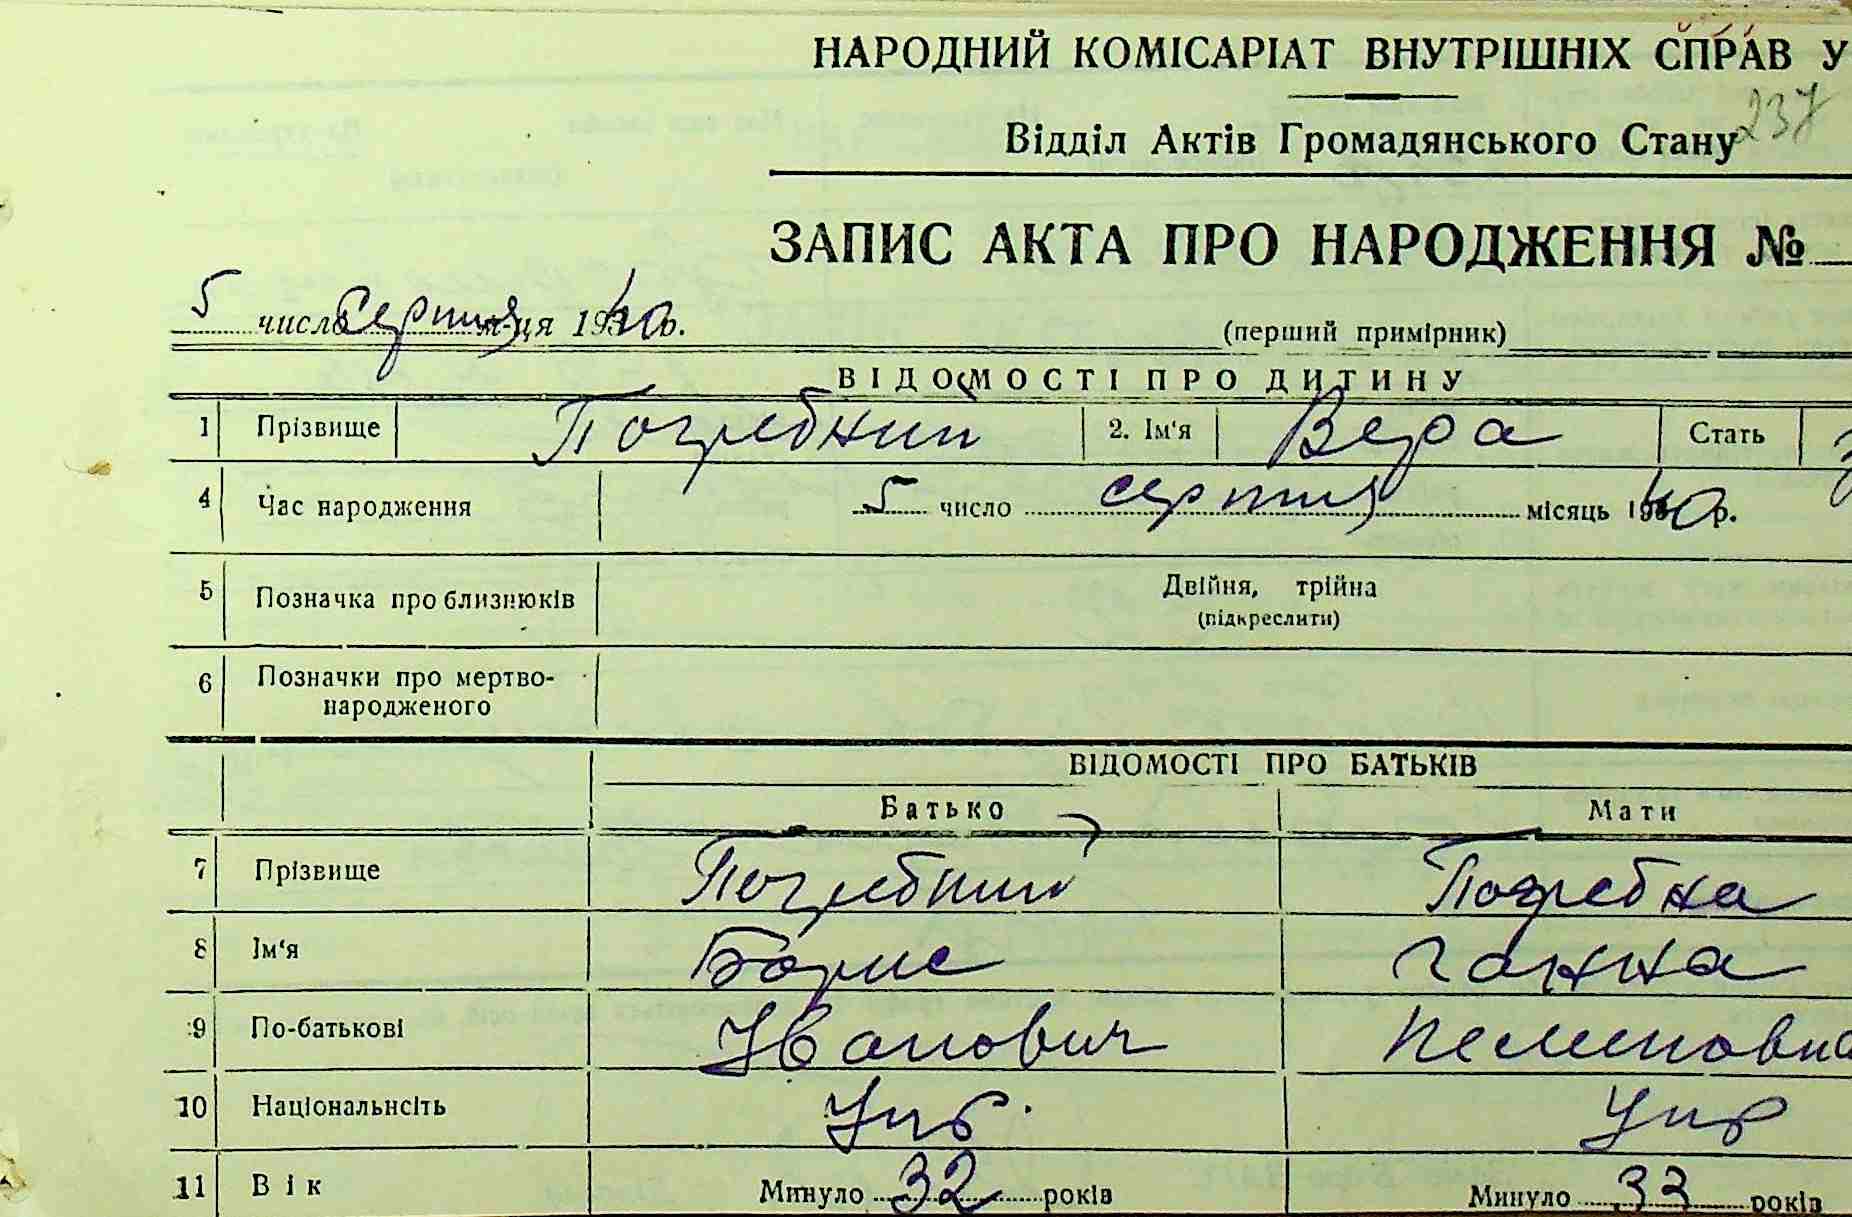 НАРОДНИЙ КОМІСАРІАТ ВНУТРІШНІХ СПРАВ У
237
Відділ Актів Громадянського Стану
ЗАПИС АКТА ПРО НАРОДЖЕННЯ №
5 число серпня м-ця 1940 р.
(перший примірник)
ВІДОМОСТІ ПРО ДИТИНУ
1 Прізвище Погребний 2. Ім'я Вера Стать
4 Час народження 5 число серпня місяць 1940 р.
5 Позначка про близнюків Двійня, трійна
(підкреслити)
6 Позначки про мертво-
народженого
ВІДОМОСТІ ПРО БАТЬКІВ
Батько Мати
7 Прізвище Погребний Погребна
8 Ім'я Борис Ганна
9 По-батькові Іванович
10 Національнсіть Укр. Укр
11 Вік Минуло 32 років Минуло 33 років